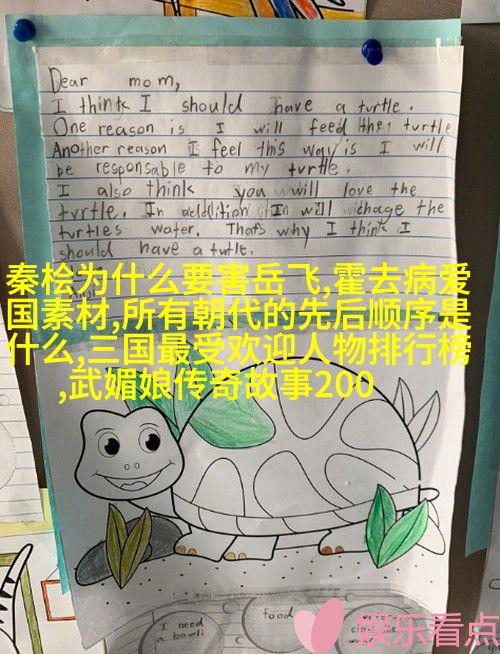 Dear mom,
I think I should have a turtle.
One reason is I will feed the turtle
Another reason I feel this way is I will
be responsable to my turtle.
I also think you will love the
turtle. In addition I will chage the
turtles water. Thats why I think I
should have a turtle.
秦桧为什么要害岳飞,霍去病爱
国素材,所有朝代的先后顺序是
什么,三国最受欢迎人物排行榜
,武媚娘传奇故事200
I need
a bowl
food
娱乐看点